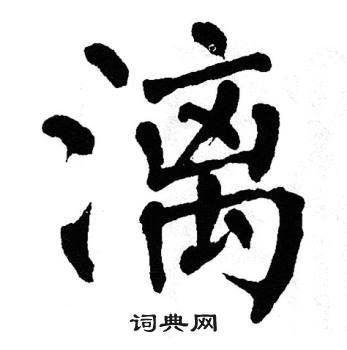 漓
词典网